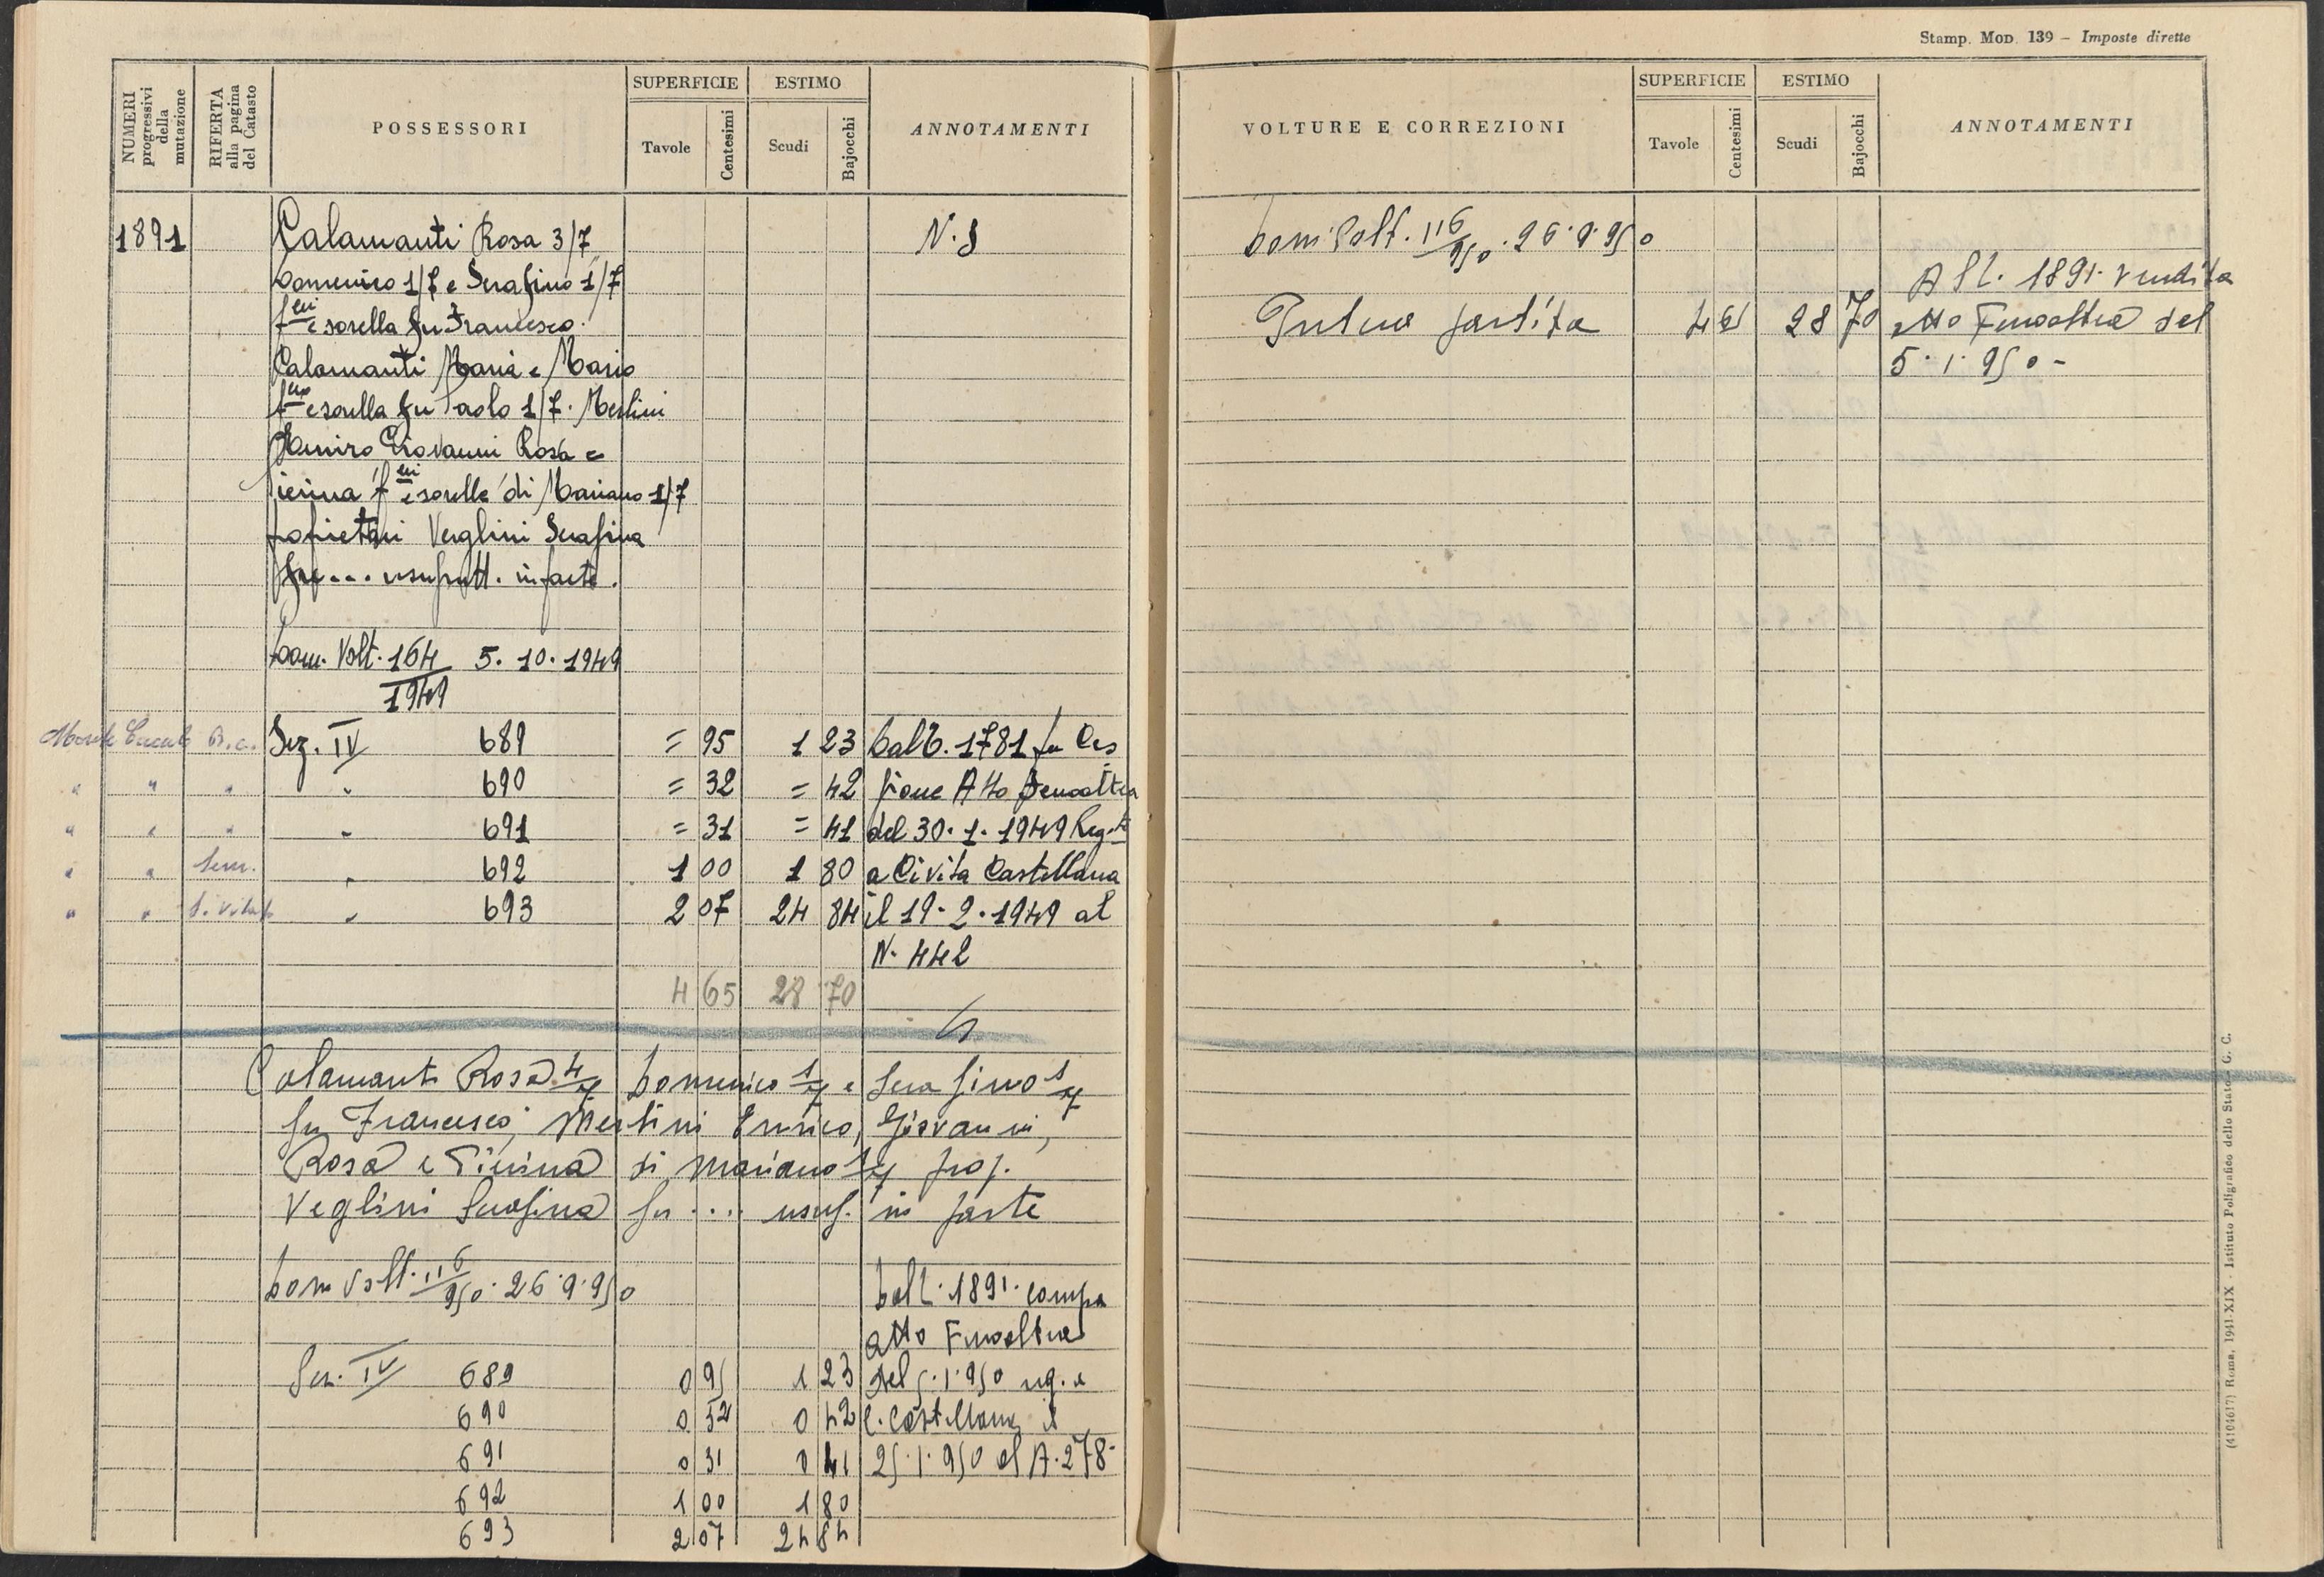 NUMERI progressivi della mutazione
RIFERTA alla pagina del Catasto
POSSESSORI
SUPERFICIE
Tavole
Centesimi
ESTIMO
Scudi
Bajocchi
ANNOTAMENTI
1891 Calamanti Rosa 3/7 N. 8
Domenico 1/7 e Serafino 1/7
f.lli e sorella fu Francesco.
Calamanti Maria e Mario
e sorella fu Paolo 1/7. Merlini
Giovanni Rosa e
Pierina f.lli e sorelle di Mariano 1/7
proprietari Verglini Serafina
fu... usufrutt. in parte.
Dom. Volt. 164/1949 5.10.1949
Monte B.c. Sez. IV 689 = 95 1 23 Dall. 1781 fu Ces
" " " " 690 = 32 = 42 sione Atto
" " " " 691 = 31 = 41 del 30.1.1949 Reg.to
" " Sem. " 692 1 00 1 80 a Civita Castellana
" " S. vitat " 693 2 07 24 84 il 19.2.1949 al
N. 442
4 65 28 70
Calamanti Rosa 4/7 Domenico 1/7 e Serafino 1/7
fu Francesco, Merlini Enrico, Giovanni,
Rosa e Pierina di Mariano 1/7 prop.
Veglini Serafina fu .... usuf. in parte
Dom Volt. 116/950. 26.9.950 Dall. 1891. compra
atto
Sez. IV 689 0 95 1 23 del 5.1.950 reg. a
690 0 32 0 42 C. Castellana il
691 0 31 0 41 25.1.950 al N. 278-
692 1 00 1 80
693 2 07 24 84
Stamp. MOD. 139 – Imposte dirette
VOLTURE E CORREZIONI
SUPERFICIE
Tavole
Centesimi
ESTIMO
Scudi
Bajocchi
ANNOTAMENTI
Dom. Volt. 116/950. 26.9.950
All. 1891. vendita
Intera partita 4 65 28 70 atto del
5.1.950-
(4104617) Roma, 1941-XIX - Istituto Poligrafico dello Stato - G. C.